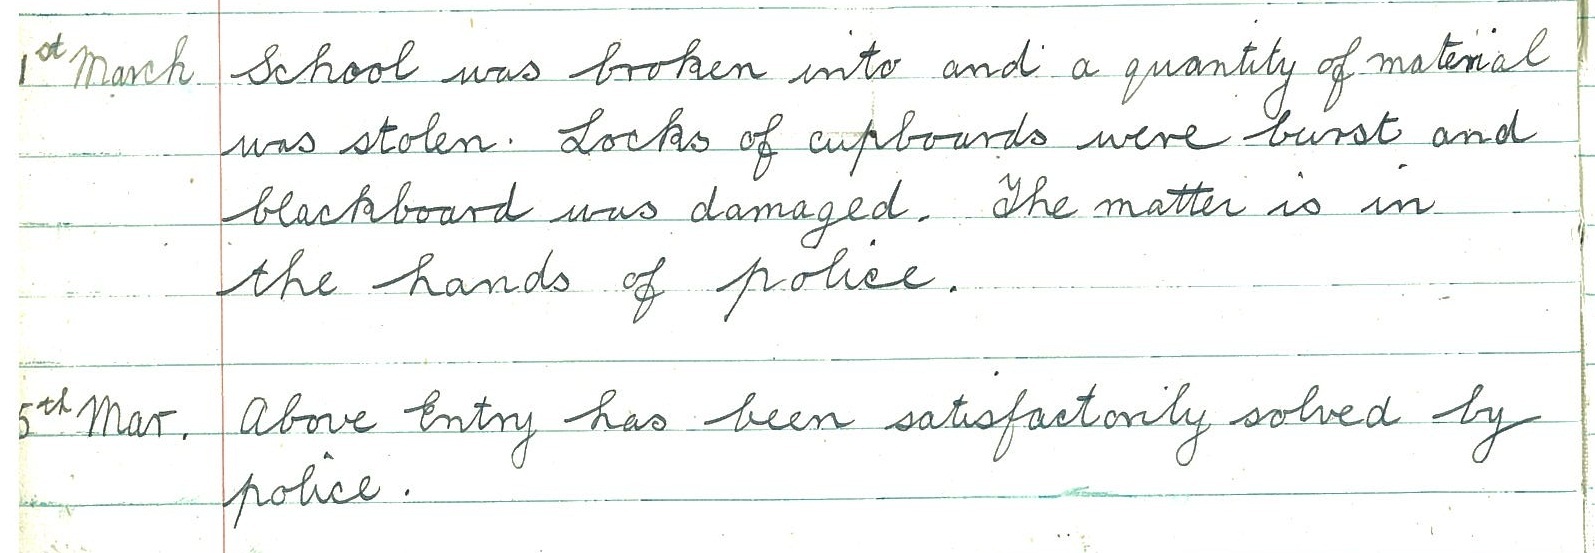 1st March School was broken into and a quantity of material
was stolen. Locks of cupboards were burst and
blackboard was damaged. The matter is in
the hands of police.
5th Mar. Above Entry has been satisfactorily solved by
police.